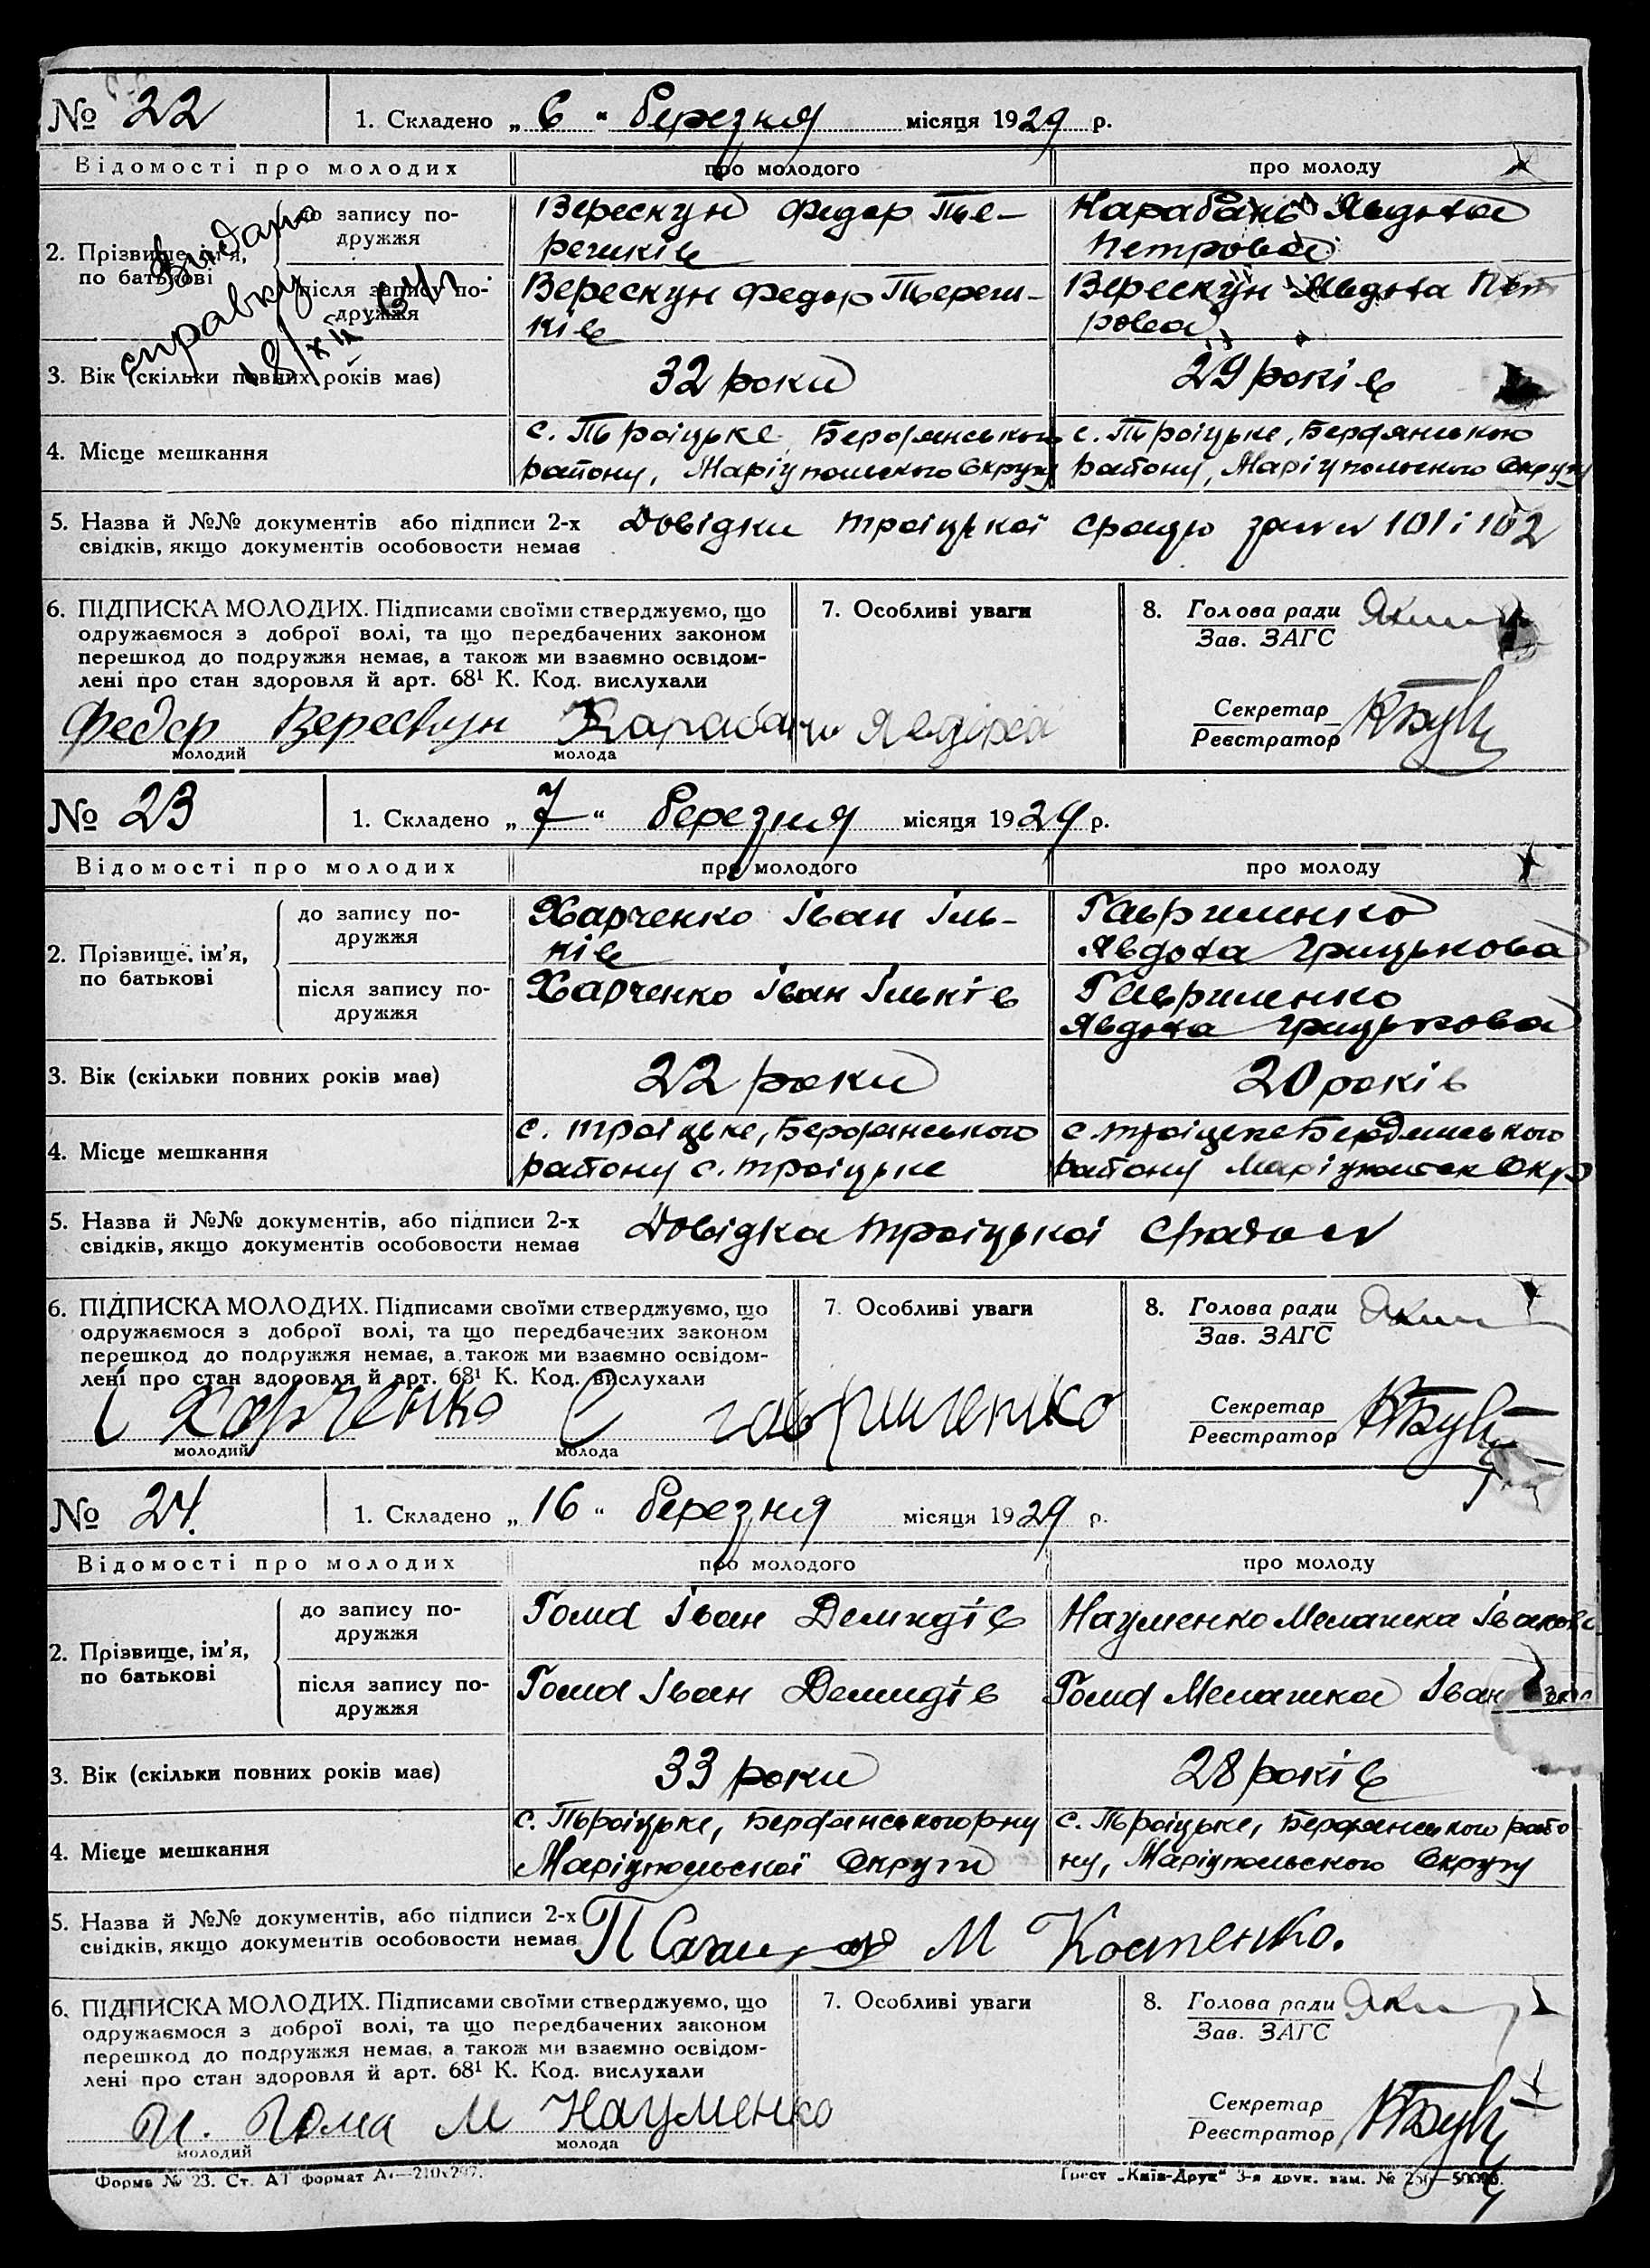 № 22
1. Складено „ 6 “ березня місяця 1929 р.
Відомості про молодих
про молодого
про молоду
2. Прізвище, ім'я,
по батькові
до запису по-
дружжя
Верескун Федор Те-
решків
Карабань Явдоха
Петрова
після запису по-
дружжя
Верескун Федор Тереш-
ків
Верескун Явдоха Пет
рова
видано
справку
18/XII
3. Вік (скільки повних років має)
32 роки
29 років
4. Місце мешкання
с. Троіцьке Бердянського
району, Маріупольского Округу
с. Троіцьке, Бердянського
району, Маріупольского Округу
5. Назва й №№ документів або підписи 2-х
свідків, якщо документів особовости немає
Довідки Троіцькоі сради за №№ 101 і 102
6. ПІДПИСКА МОЛОДИХ. Підписами своїми стверджуємо, що
одружаємося з доброї волі, та що передбачених законом
перешкод до подружжя немає, а також ми взаємно освідом-
лені про стан здоровля й арт. 68¹ К. Код. вислухали
Федор Верескун Карабань Явдоха
молодий
молода
7. Особливі уваги
8. Голова ради
Зав. ЗАГС
Секретар
Реєстратор
№ 23
1. Складено „ 7 “ березня місяця 1929 р.
Відомості про молодих
про молодого
про молоду
2. Прізвище, ім'я,
по батькові
до запису по-
дружжя
Харченко Іван Іль-
ків
Гавриленко
Явдоха Грицькова
після запису по-
дружжя
Харченко Іван Ільків
Гавриленко
Явдоха Грицькова
3. Вік (скільки повних років має)
22 роки
20 років
4. Місце мешкання
с. Троіцьке, Бердянського
району с. Троіцьке
с. Троіцьке Бердянського
району Маріупольск Окр
5. Назва й №№ документів, або підписи 2-х
свідків, якщо документів особовости немає
Довідка Троіцькоі сради №
6. ПІДПИСКА МОЛОДИХ. Підписами своїми стверджуємо, що
одружаємося з доброї волі, та що передбачених законом
перешкод до подружжя немає, а також ми взаємно освідом-
лені про стан здоровля й арт. 68¹ К. Код. вислухали
І Харченко Є гавриленко
молодий
молода
7. Особливі уваги
8. Голова ради
Зав. ЗАГС
Секретар
Реєстратор
№ 24.
1. Складено „ 16 “ березня місяця 1929 р.
Відомості про молодих
про молодого
про молоду
2. Прізвище, ім'я,
по батькові
до запису по-
дружжя
Гома Іван Демидів
Науменко Мелашка Іванова
після запису по-
дружжя
Гома Іван Демидів
Гома Мелашка Іван
3. Вік (скільки повних років має)
33 роки
28 років
4. Місце мешкання
с. Троіцьке, Бердянського рну
Маріупольскоі Округи
с. Троіцьке, Бердянського райо
ну, Маріупольского Округу
5. Назва й №№ документів, або підписи 2-х
свідків, якщо документів особовости немає
П М Костенко.
6. ПІДПИСКА МОЛОДИХ. Підписами своїми стверджуємо, що
одружаємося з доброї волі, та що передбачених законом
перешкод до подружжя немає, а також ми взаємно освідом-
лені про стан здоровля й арт. 68¹ К. Код. вислухали
И. Гома М Науменко
молодий
молода
7. Особливі уваги
8. Голова ради
Зав. ЗАГС
Секретар
Реєстратор
Форма № 23. Ст. А1 формат А₄—210×297.
Трест „Київ-Друк“ 3-я друк. зам. № 256—50000.